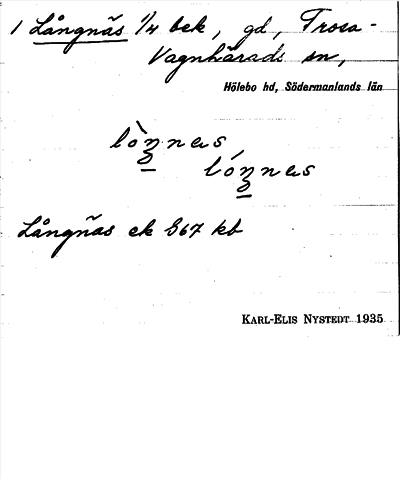 1 Långnäs 1/4 bek, gd, Trosa-
Vagnhärads sn,
Hölebo hd, Södermanlands län
lònnas,
lónnas
Långnäs ek 567 kb
KARL-ELIS NYSTEDT 1935